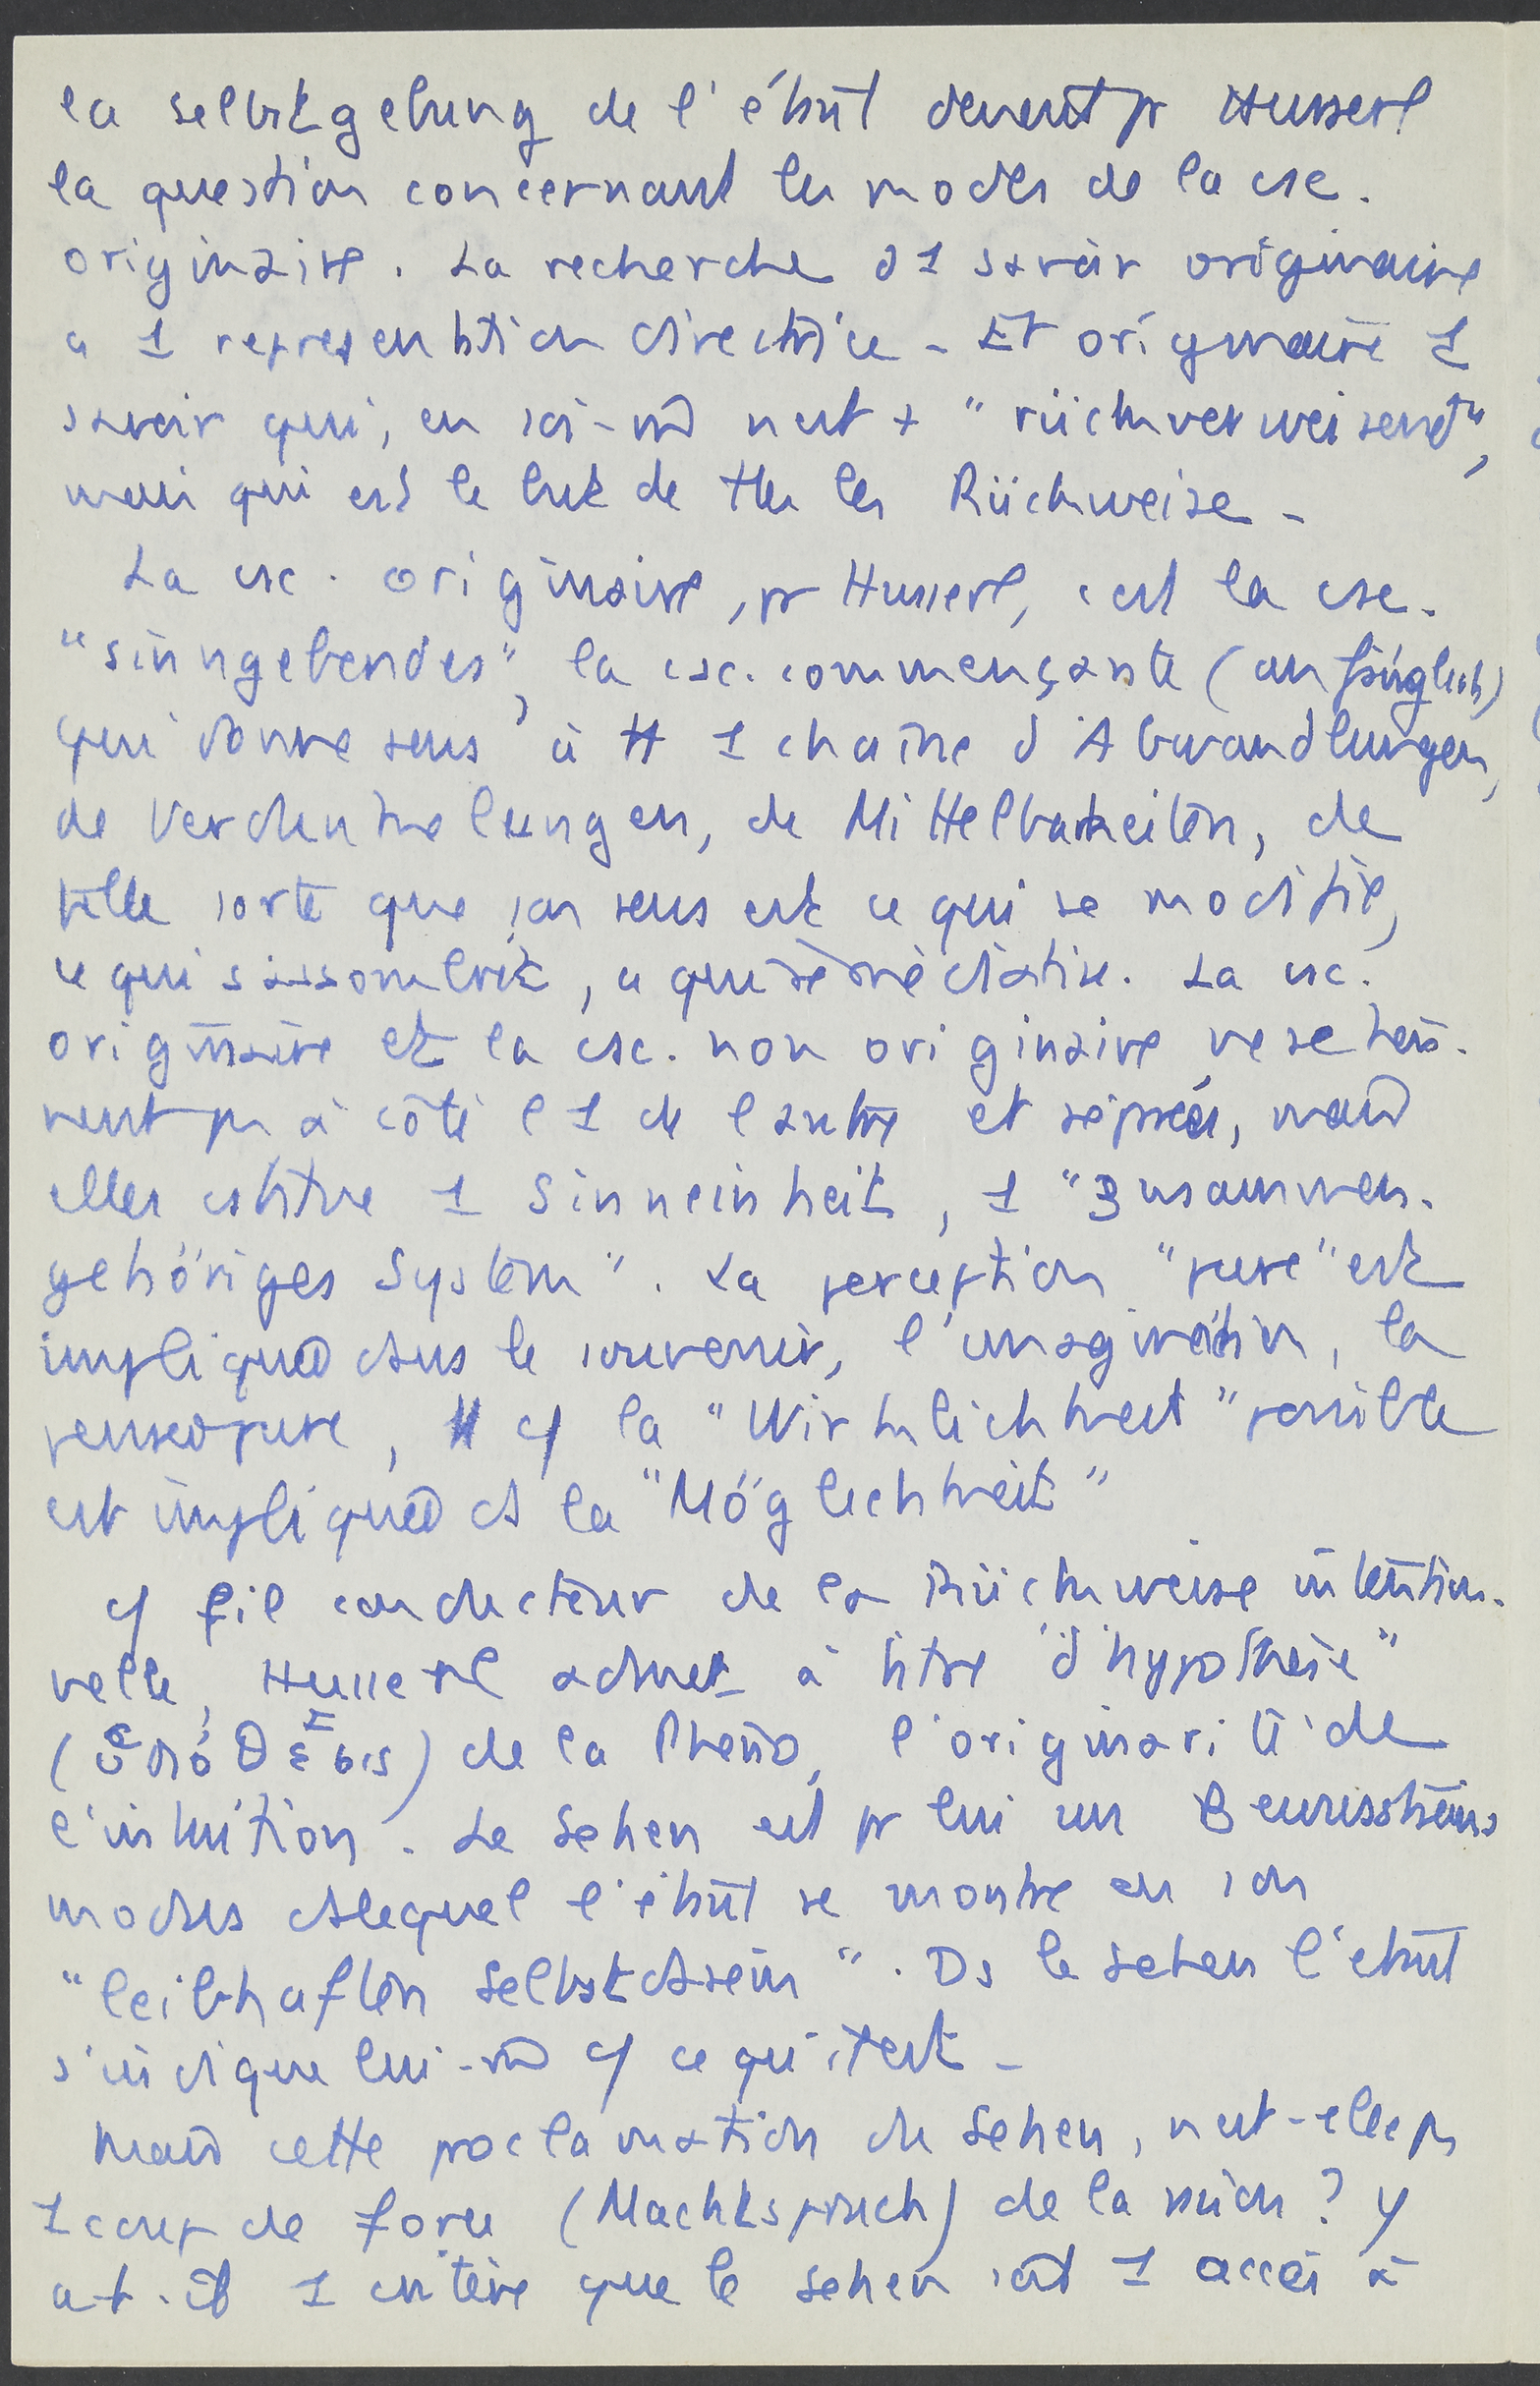 la Selbstgebung de l'étant devient pr Husserl
la question concernant les modes de la csc.
originaire. La recherche d 1 savoir originaire
a 1 representation directrice - Et originaire 1
savoir qui, en soi-m̂ n'est + "rückverweisend",
mais qui est le but de tts les Rückweise -
La csc. originaire, pr Husserl, c'est la csc.
"sinngebendes", la csc. commençante (anfänglich)
qui donne sens à tt 1 chaîne d'Abwandlungen,
de Verdunkelungen, de Mittelbarkeiten, de
telle sorte que son sens est ce qui se modifie,
ce qui s'assombrit, ce qui se médiatise. La csc.
originaire et la csc. non originaire ne se tien-
nent pas à côté l'1 de l'autre et séparées, mais
elles cstitue 1 Sinneinheit, 1 "Zusammen-
gehöriges System". La perception "pure" est
impliquée dans le souvenir, l'imagination, la
pensée pure, tt cf la "Wirklichkeit" possible
est impliquée ds la "Möglichkeit"
cf fil conducteur de la Rückweise intention-
nelle, Husserl admet à titre "d'hypothèse"
(ὑπόθεσις) de la Phéno, l'originarité de
l'intuition. Le Sehen est pr lui un Bewusstseins
modus ds lequel l'étant se montre en son
"leibhaften Selbstdasein". Ds le Sehen l'étant
s'indique lui-m̂ cf ce qu'il est -
Mais cette proclamation du Sehen, n'est-elle pas
1 coup de force (Machtspruch) de la raison? Y
a-t-il 1 critère que le sehen soit 1 accès à